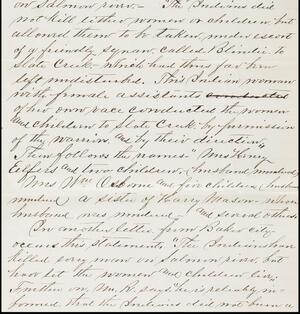 on Salmon river. – "The Indians did
not kill either women or children but
allowed them to be taken, under escort
of a friendly squaw, called Blindie to
Slate Creek, which had thus far been
left undisturbed. This Indian woman
with female assistants
of her own race conducted the women
and children to Slate Creek by permission
of the warriors, and by their direction."
Then follows the names "Mrs Henry
Elfers and two children, (husband murdered)
Mrs Wm Osborne and five children (husband
murdered) a sister of Harry Mason whose
husband was murdered, and several others.
In another letter from Baker city
occurs this statement, "The Indians have
killed every man on Salmon river, but
have let the women and children live."
Further on, Mr. R. says "he is reliably in-
formed, that the Indians did not burn a